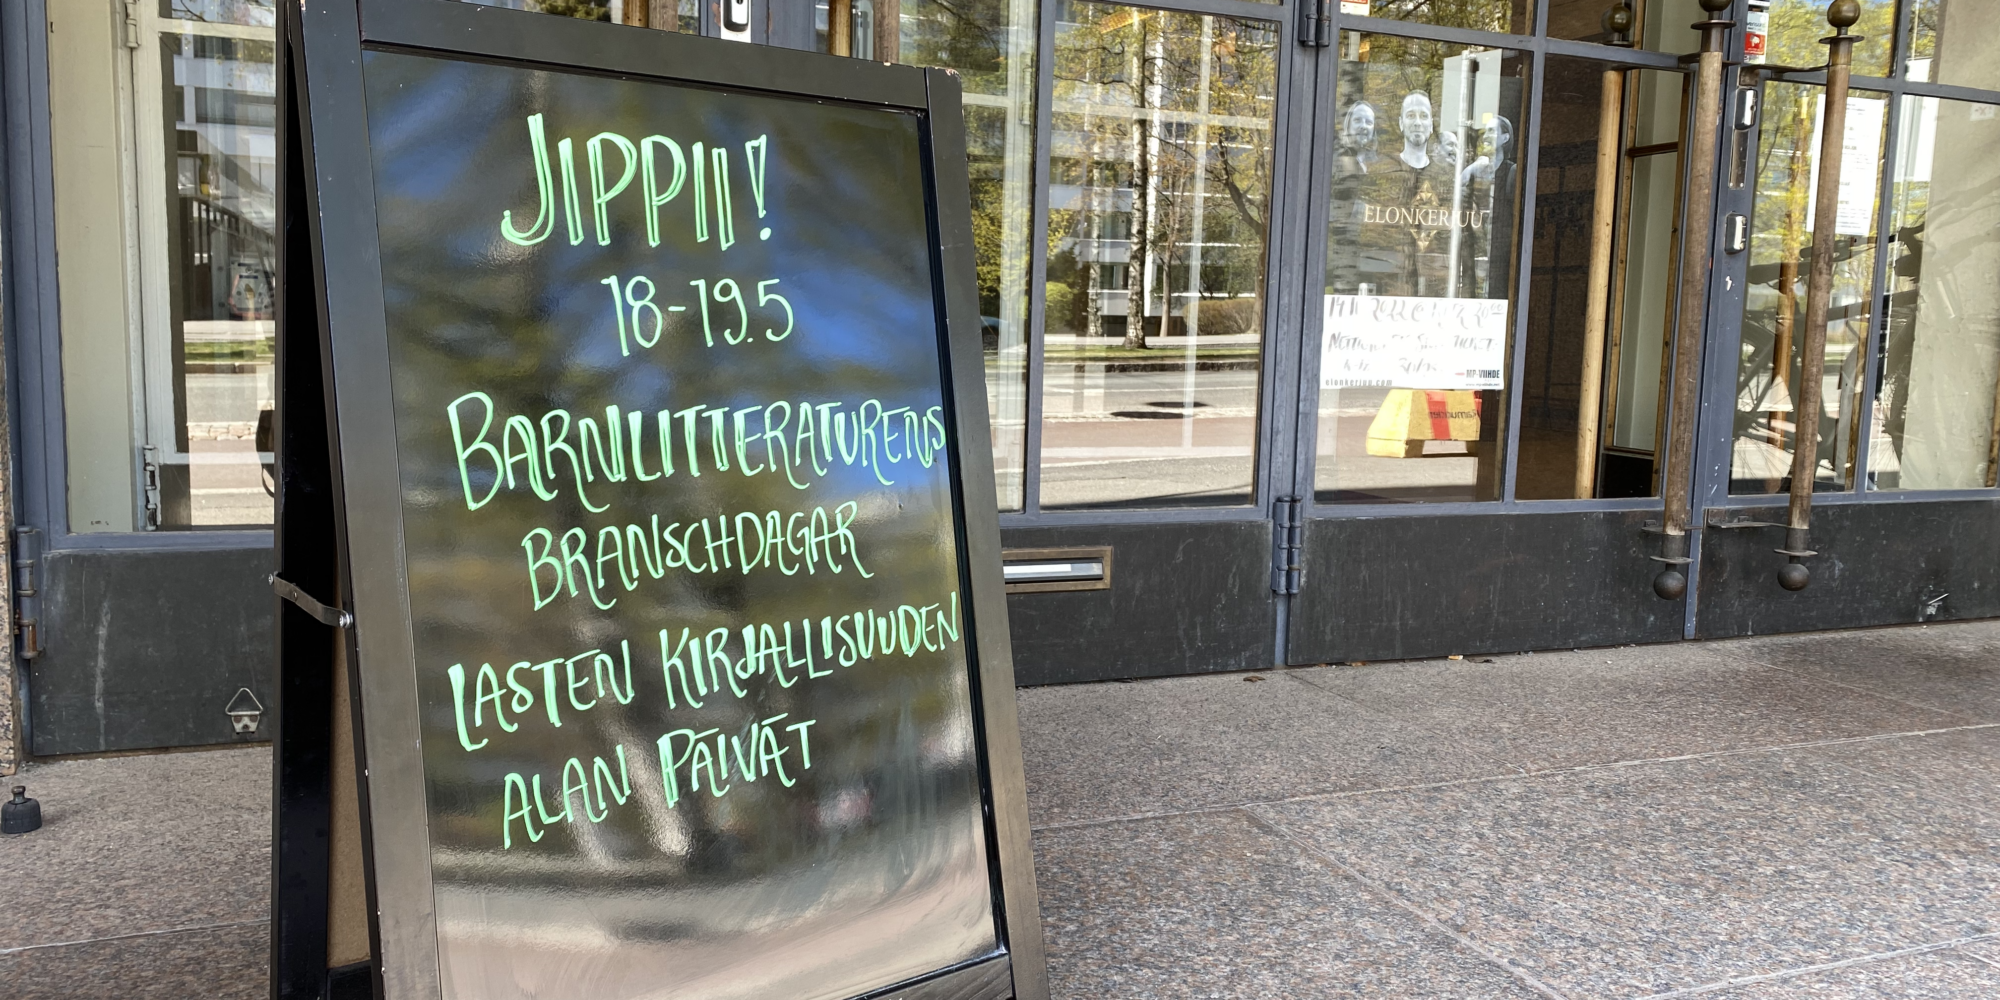 JIPPII!
18-19.5
BARNLITTERATURENS
BRANSCHDAGAR
LASTEN KIRJALLISUUDEN
ALAN PÄIVÄT
ELONKERJUU
elonkerjuu.com
MP-VIIHDE